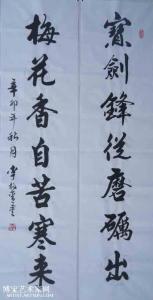 寶劍鋒從磨礪出
梅花香自苦寒来
辛卯年秋月
博宝艺术家网